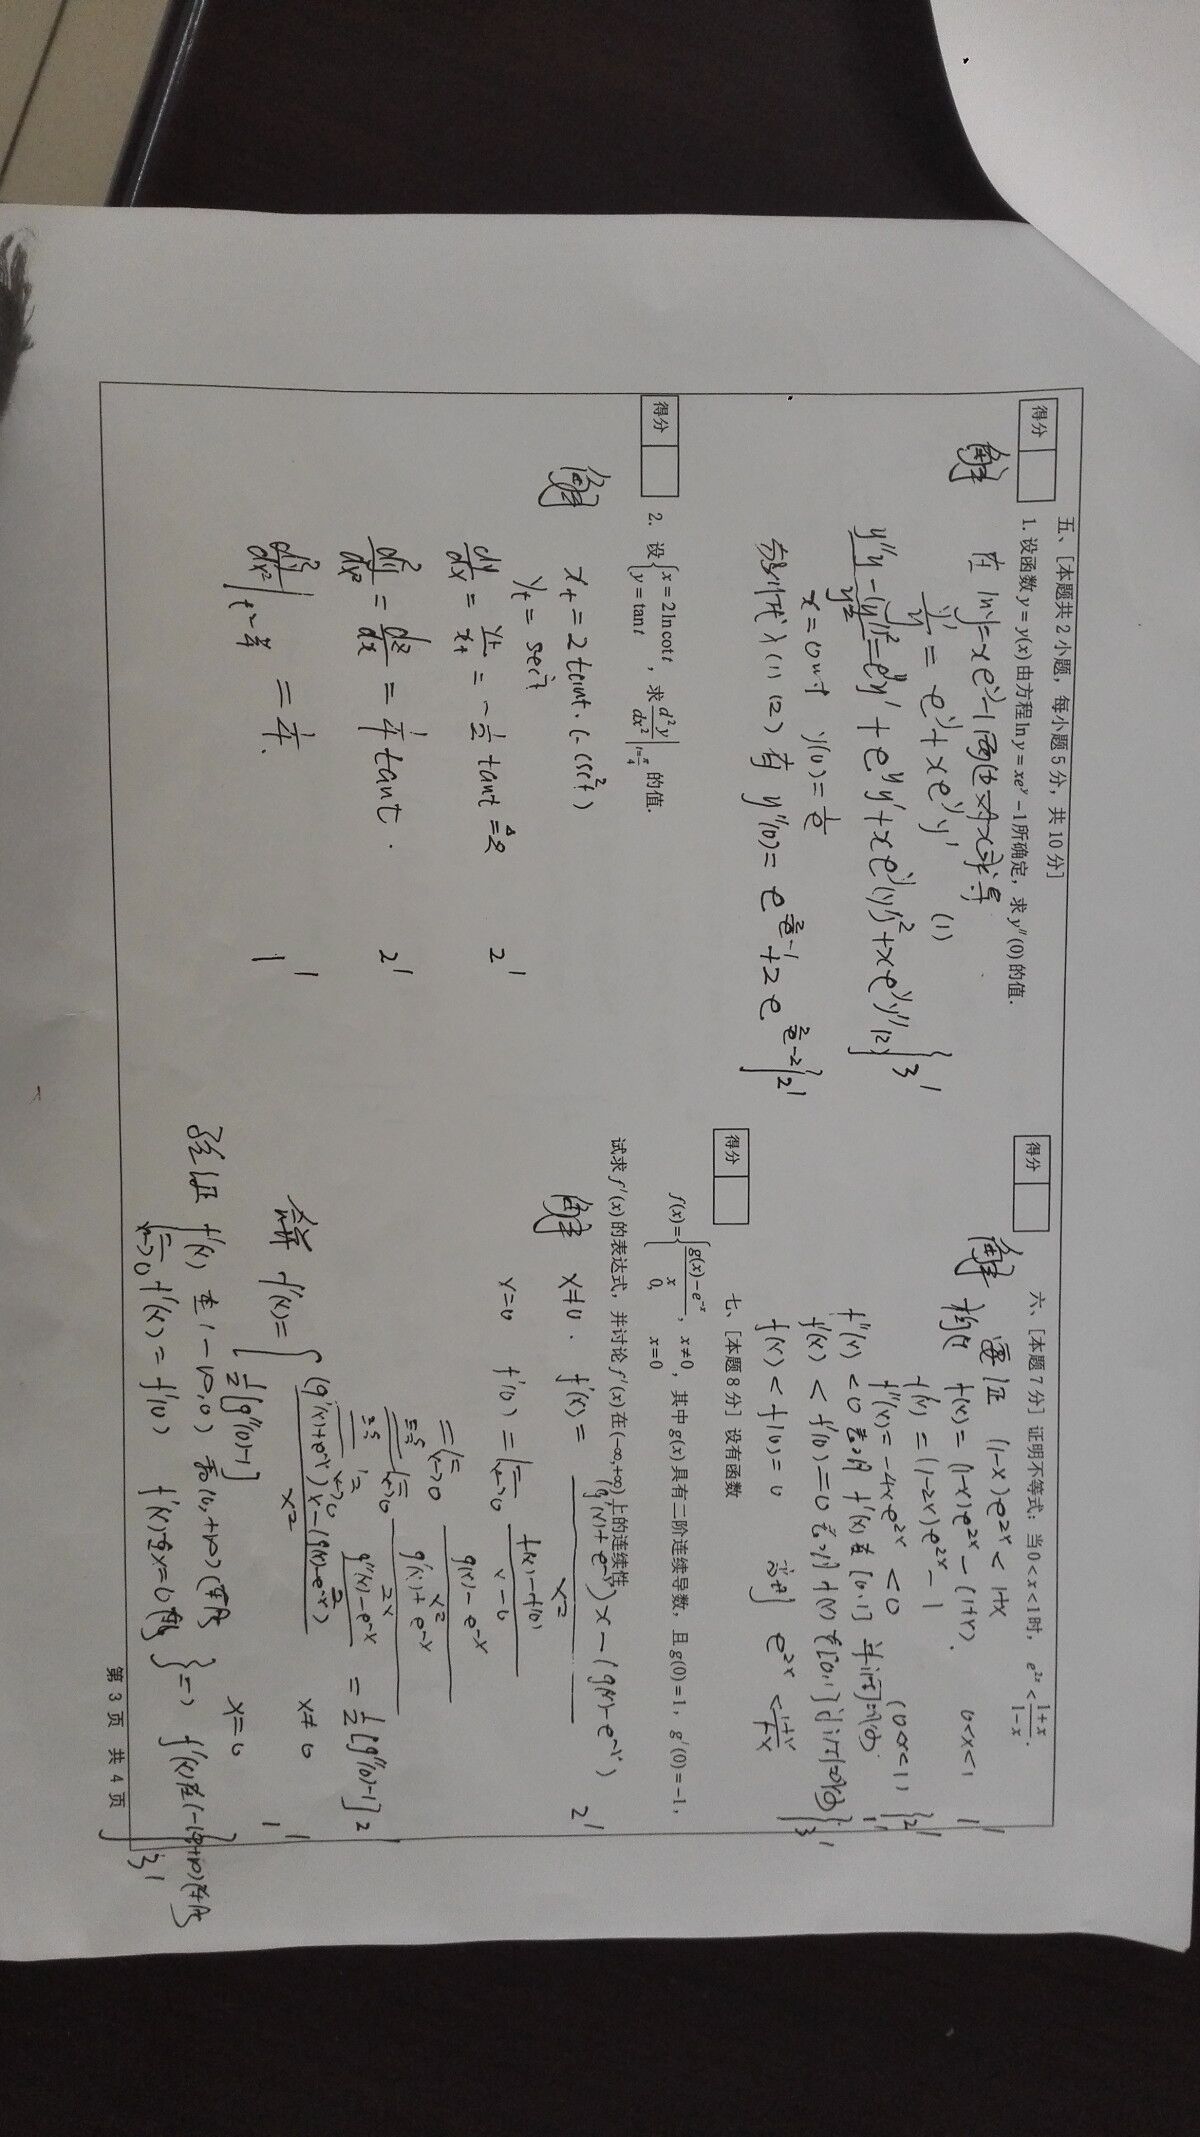 五、[本题共2小题，每小题5分，共10分]
得分
1. 设函数 y = y(x) 由方程 ln y = xe^y − 1 所确定，求 y″(0) 的值.
解 在 lny = xe^y − 1 两边对x求导
y'/y = e^y + xe^y y' (1)
(y″y − (y')²)/y² = e^y y' + e^y y' + xe^y (y')² + xe^y y″ (2) } 3'
x = 0时 y(0) = 1/e
分别代入(1) (2) 有 y″(0) = e^(2/e − 1) + 2e^(2/e − 2) } 2'
得分
2. 设 { x = 2 ln cot t, y = tan t ，求 d²y/dx² |_{t=π/4} 的值.
解 x_t = 2 tant · (−csc²t)
y_t = sec²t
dy/dx = y_t/x_t = −1/2 tant ≜ z 2'
d²y/dx² = dz/dx = 1/4 tant . 2'
d²y/dx² |_{t=π/4} = 1/4. 1'
得分
六、[本题7分] 证明不等式：当 0 < x < 1 时， e^{2x} < (1+x)/(1−x).
解 要证 (1−x)e^{2x} < 1+x
构造 f(x) = (1−x)e^{2x} − (1+x). 0<x<1 1'
f'(x) = (1−2x)e^{2x} − 1
f″(x) = −4xe^{2x} < 0 (0<x<1) } 2'
f″(x) < 0 表明 f'(x) 在 [0,1] 单调减少 1'
f'(x) < f'(0) = 0 表明 f(x) 在 [0,1] 单调减少
f(x) < f(0) = 0 即 e^{2x} < (1+x)/(1−x) } 3'
得分
七、[本题8分] 设有函数
f(x) = { (g(x) − e^{−x})/x, x≠0; 0, x=0 ，其中 g(x) 具有二阶连续导数，且 g(0) = 1， g'(0) = −1，
试求 f'(x) 的表达式，并讨论 f'(x) 在 (−∞,+∞) 上的连续性
解 x≠0 . f'(x) = ((g'(x) + e^{−x})x − (g(x) − e^{−x}))/x² 2'
x=0 f'(0) = lim_{x→0} (f(x) − f(0))/(x − 0)
= lim_{x→0} (g(x) − e^{−x})/x²
= lim_{x→0} (g'(x) + e^{−x})/2x
= lim_{x→0} (g″(x) − e^{−x})/2 = 1/2 [g″(0) − 1] 2
合并 f'(x) = { ((g'(x) + e^{−x})x − (g(x) − e^{−x}))/x² x≠0
1/2 [g″(0) − 1] x=0 1'
验证 f'(x) 在 (−∞,0) 和 (0,+∞) 连续
lim_{x→0} f'(x) = f'(0) f'(x)在x=0连续 } ⇒ f'(x)在(−∞,+∞)连续 } 3'
第 3 页 共 4 页